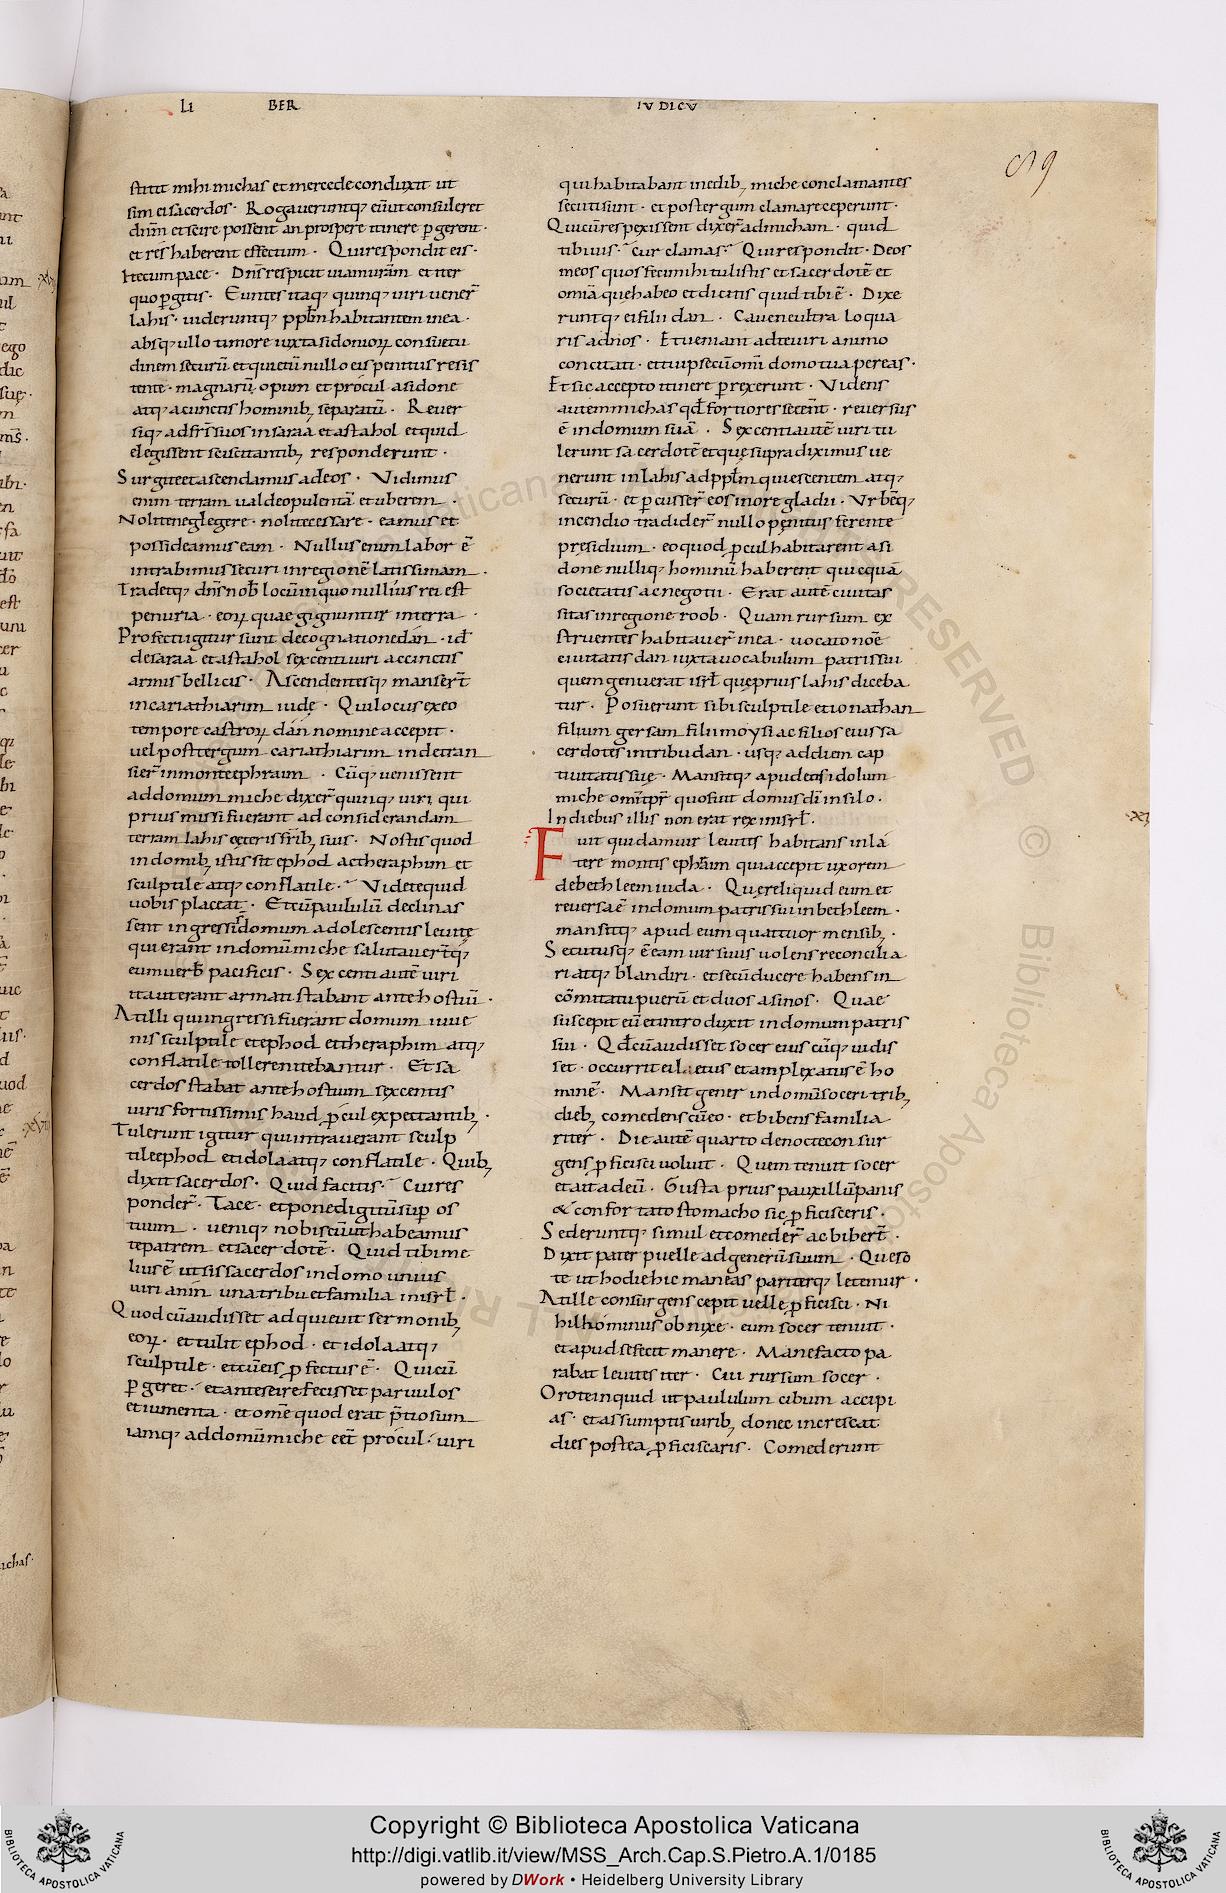 LI BER IVDICV
89
stitit mihi michas et mercede conduxit ut
sim ei sacerdos · Rogaveruntq; eu͂ ut consuleret
dn͂m et scire possent an prospere itinere p̱gerent ·
et res haberent effectum · Qui respondit eis ·
Ite cum pace · Dn͂s respicit uiam uram̄ et iter
quo p̱gitis · Euntes itaq; quinq; uiri uener̄
lahis · uideruntq; pp̄lm habitantem in ea ·
absq; ullo timore iuxta sidonioꝝ consuetu
dinem securū et quietū nullo eis penitus resis
tente · magnarū opum et procul a sidone
atq; a cunctis hominib; separatū · Reuer
siq; ad fr̄s suos in saraa et astahol et quid
elegissent sciscitantib; responderunt ·
Surgite et ascendamus ad eos · Vidimus
enim terram ualde opulentā et uberem ·
Nolite neglegere · nolite cessare · eamus et
possideamus eam · Nullus enim labor ē
intrabimus securi in regionē latissimam ·
Tradetq; dn̄s nob̄ locū in quo nullius rei est
penuria · eoꝝ quae gignuntur in terra ·
Profecti igitur sunt de cognatione dan · id̄
de saraa et astahol sexcenti uiri accincti
armis bellicis · Ascendentesq; manser̄t
in cariathiarim iudę · Qui locus ex eo
tempore castroꝝ dan nomine accepit ·
uel post tergum cariathiarim inde tran
sier̄ in monte ephraim · Cūq; uenissent
ad domum miche dixer̄ quinq; uiri qui
prius missi fuerant ad considerandam
terram lahis ceteris fr̄ib; suis · Nostis quod
in domib; istis sit ephod ac theraphim et
sculptile atq; conflatile · Videte quid
uobis placeat · Et cū paululū declinas
sent ingressi domum adolescentis leuitę
qui erant in domū miche salutauer̄tq;
eum uerb̄ pacificis · Sexcenti autē uiri
ita ut erant armati stabant ante hostiū ·
At illi qui ingressi fuerant domum iuue
nis sculptile et ephod et theraphim atq;
conflatile tollere nitebantur · Et sa
cerdos stabat ante hostium sexcentis
uiris fortissimis haud p̱cul expectantib; ·
Tulerunt igitur qui intrauerant sculp
tile ephod et idola atq; conflatile · Quib;
dixit sacerdos · Quid facitis · Cui res
ponder̄ · Tace · et pone digitū sup̱ os
tuum · ueniq; nobiscū ut habeamus
te patrem et sacerdotē · Quid tibi me
lius ē ut sis sacerdos in domo unius
uiri an in una tribu et familia in isrl̄ ·
Quod cū audisset adquieuit sermonib;
eoꝝ · et tulit ephod · et idola atq;
sculptile · et cū eis p̱fectus ē · Qui cū
p̱geret · et ante se ire fecisset paruulos
et iumenta · et omē quod erat p̄tiosum
iamq; ad domū miche eēt procul · uiri
qui habitabant in edib; miche conclamantes
secuti sunt · et post tergum clamare ceperunt ·
Qui cū respexissent dixer̄ ad micham · quid
tibi uis · cur clamas · Qui respondit · Deos
meos quos feci mihi tulistis et sacerdotē et
omīa que habeo et dicitis quid tibi ē · Dixe
runtq; ei filii dan · Caue ne ultra loqua
ris ad nos · Et ueniant ad te uiri animo
concitati · et tu ipse cū omī domo tua pereas ·
Et sic accepto itinere p̱rexerunt · Videns
autem michas qd̄ fortiores se cēnt · reuersus
ē in domum suā · Sexcenti autē uiri tu
lerunt sacerdotē et que supra diximus ue
nerunt in lahis ad pp̄lm quiescentem atq;
securū · et p̱cusser̄ eos in ore gladii · Vrbēq;
incendio tradider̄ nullo penitus ferente
presidium · eo quod p̱cul habitarent a si
done nulliq; hominū haberent quicquā
societatis ac negotii · Erat autē ciuitas
sita in regione roob · Quam rursum ex
struentes habitauer̄ in ea · uocato noē
ciuitatis dan iuxta uocabulum patris sui
quem genuerat isrl̄ quę prius lahis diceba
tur · Posuerunt sibi sculptile et ionathan
filium gersam filii moysi ac filios eius sa
cerdotes in tribu dan · usq; ad diem cap
tiuitatis suę · Mansitq; apud eos idolum
miche omī tp̄r quo fuit domus dī in silo ·
In diebus illis non erat rex in isrl̄ ·
Fuit quidam uir leuites habitans in la
tere montis ephaim qui accepit uxorem
de bethleem iuda · Que reliquid eum et
reuersa ē in domum patris sui in bethleem ·
mansitq; apud eum quattuor mensib; ·
Secutusq; ē eam uir suus uolens reconcilia
ri atq; blandiri · et secū ducere habens in
cōmitatu puerū et duos asinos · Quae
suscepit eū et introduxit in domum patris
sui · Qd̄ cū audisset socer eius cūq; uidis
set · occurrit ei laetus et amplexatus ē ho
minē · Mansit gener in domū soceri trib;
dieb; comedens cū eo · et bibens familia
riter · Die autē quarto de nocte consur
gens p̱ficisci uoluit · Quem tenuit socer
et ait ad eū · Gusta prius pauxillū panis
& conforta to stomacho sic p̱ficisceris ·
Sederuntq; simul et comeder̄ ac biber̄t ·
Dixit pater puelle ad generū suum · Queso
te ut hodie hic maneas pariterq; letemur ·
At ille consurgens cepit uelle p̱ficisci · Ni
hilhominus obnixe · eum socer tenuit ·
et apud se fecit manere · Mane facto pa
rabat leuites iter · Cui rursum socer ·
Oro te inquid ut paululum cibum accipi
as · et assumptis uirib; donec increscat
dies postea p̱ficiscaris · Comederunt
Copyright © Biblioteca Apostolica Vaticana
http://digi.vatlib.it/view/MSS_Arch.Cap.S.Pietro.A.1/0185
powered by DWork • Heidelberg University Library